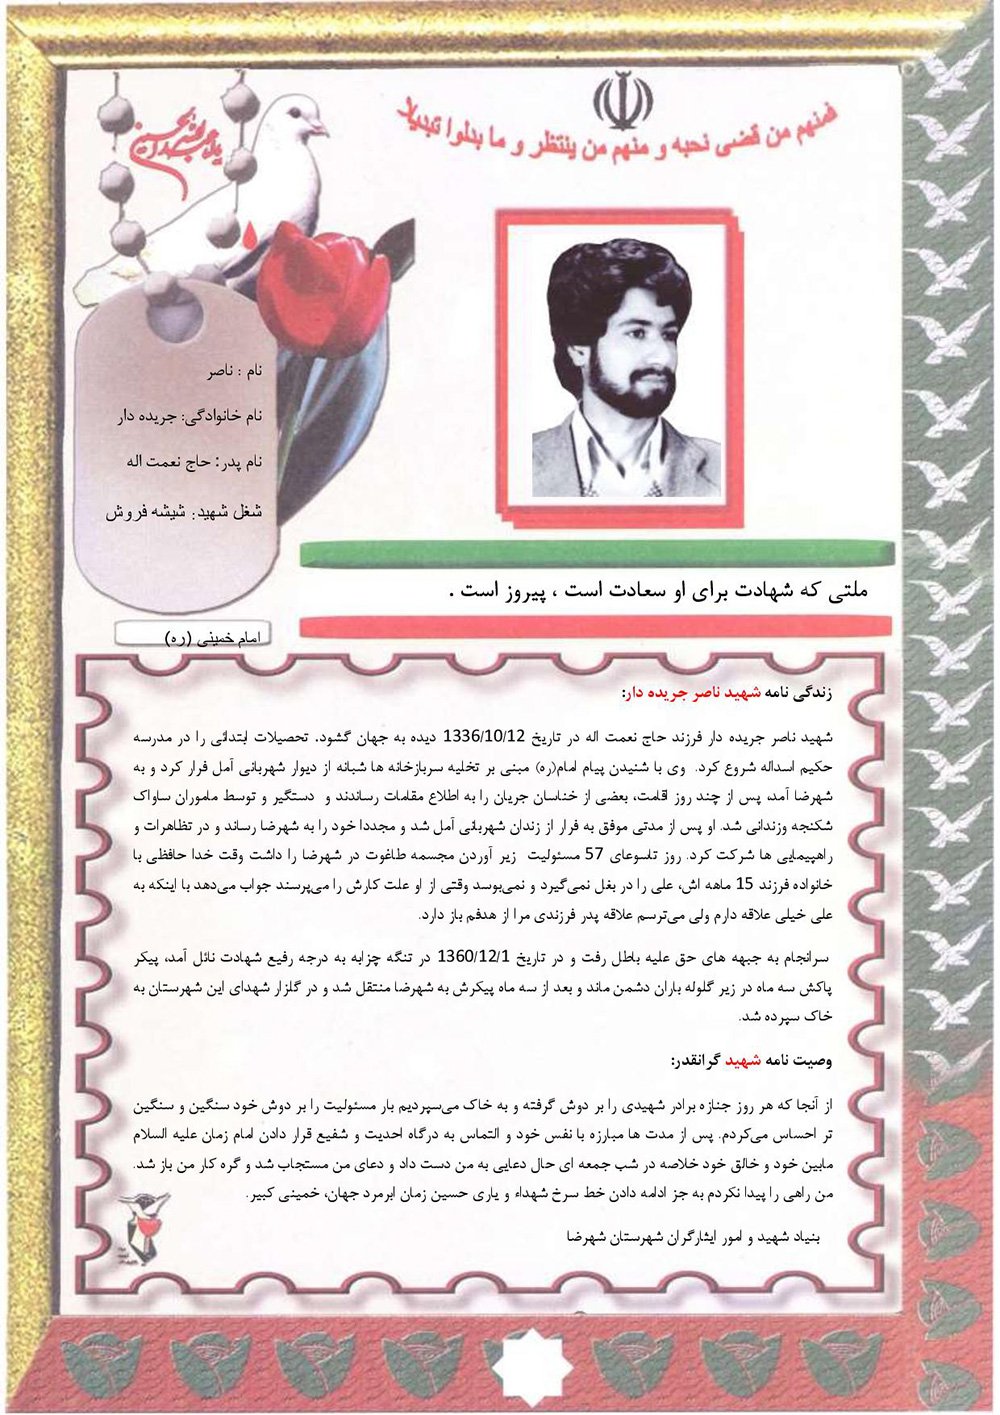 فمنهم من قضی نحبه و منهم من ینتظر و ما بدلوا تبدیلا
نام : ناصر
نام خانوادگی: جریده دار
نام پدر: حاج نعمت اله
شغل شهید: شیشه فروش
ملتی که شهادت برای او سعادت است ، پیروز است .
امام خمینی (ره)
زندگی نامه شهید ناصر جریده دار:
شهید ناصر جریده دار فرزند حاج نعمت اله در تاریخ 1336/10/12 دیده به جهان گشود. تحصیلات ابتدائی را در مدرسه
حکیم اسداله شروع کرد. وی با شنیدن پیام امام(ره) مبنی بر تخلیه سربازخانه ها شبانه از دیوار شهربانی آمل فرار کرد و به
شهرضا آمد، پس از چند روز اقامت، بعضی از خناسان جریان را به اطلاع مقامات رساندند و دستگیر و توسط ماموران ساواک
شکنجه وزندانی شد. او پس از مدتی موفق به فرار از زندان شهربانی آمل شد و مجددا خود را به شهرضا رساند و در تظاهرات و
راهپیمایی ها شرکت کرد. روز تاسوعای 57 مسئولیت زیر آوردن مجسمه طاغوت در شهرضا را داشت وقت خدا حافظی با
خانواده فرزند 15 ماهه اش، علی را در بغل نمی‌گیرد و نمی‌بوسد وقتی از او علت کارش را می‌پرسند جواب می‌دهد با اینکه به
علی خیلی علاقه دارم ولی می‌ترسم علاقه پدر فرزندی مرا از هدفم باز دارد.
سرانجام به جبهه های حق علیه باطل رفت و در تاریخ 1360/12/1 در تنگه چزابه به درجه رفیع شهادت نائل آمد، پیکر
پاکش سه ماه در زیر گلوله باران دشمن ماند و بعد از سه ماه پیکرش به شهرضا منتقل شد و در گلزار شهدای این شهرستان به
خاک سپرده شد.
وصیت نامه شهید گرانقدر:
از آنجا که هر روز جنازه برادر شهیدی را بر دوش گرفته و به خاک می‌سپردیم بار مسئولیت را بر دوش خود سنگین و سنگین
تر احساس می‌کردم. پس از مدت ها مبارزه با نفس خود و التماس به درگاه احدیت و شفیع قرار دادن امام زمان علیه السلام
مابین خود و خالق خود خلاصه در شب جمعه ای حال دعایی به من دست داد و دعای من مستجاب شد و گره کار من باز شد.
من راهی را پیدا نکردم به جز ادامه دادن خط سرخ شهداء و یاری حسین زمان ابرمرد جهان، خمینی کبیر.
بنیاد شهید و امور ایثارگران شهرستان شهرضا